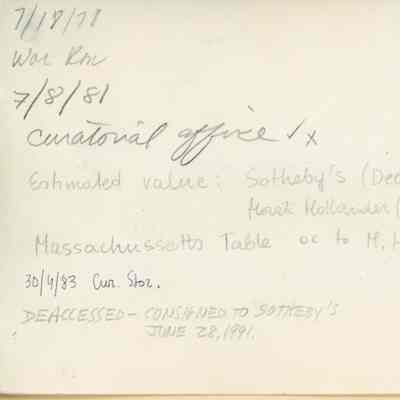 7/18/78
War Rm
7/8/81
Curatorial office √x
Estimated value: Sotheby's (Dec
Hollander (
Massachussetts Table oc to M, H
30/4/83 Cur. Stor.
DEACCESSED - CONSIGNED TO SOTHEBY'S
JUNE 28, 1991.